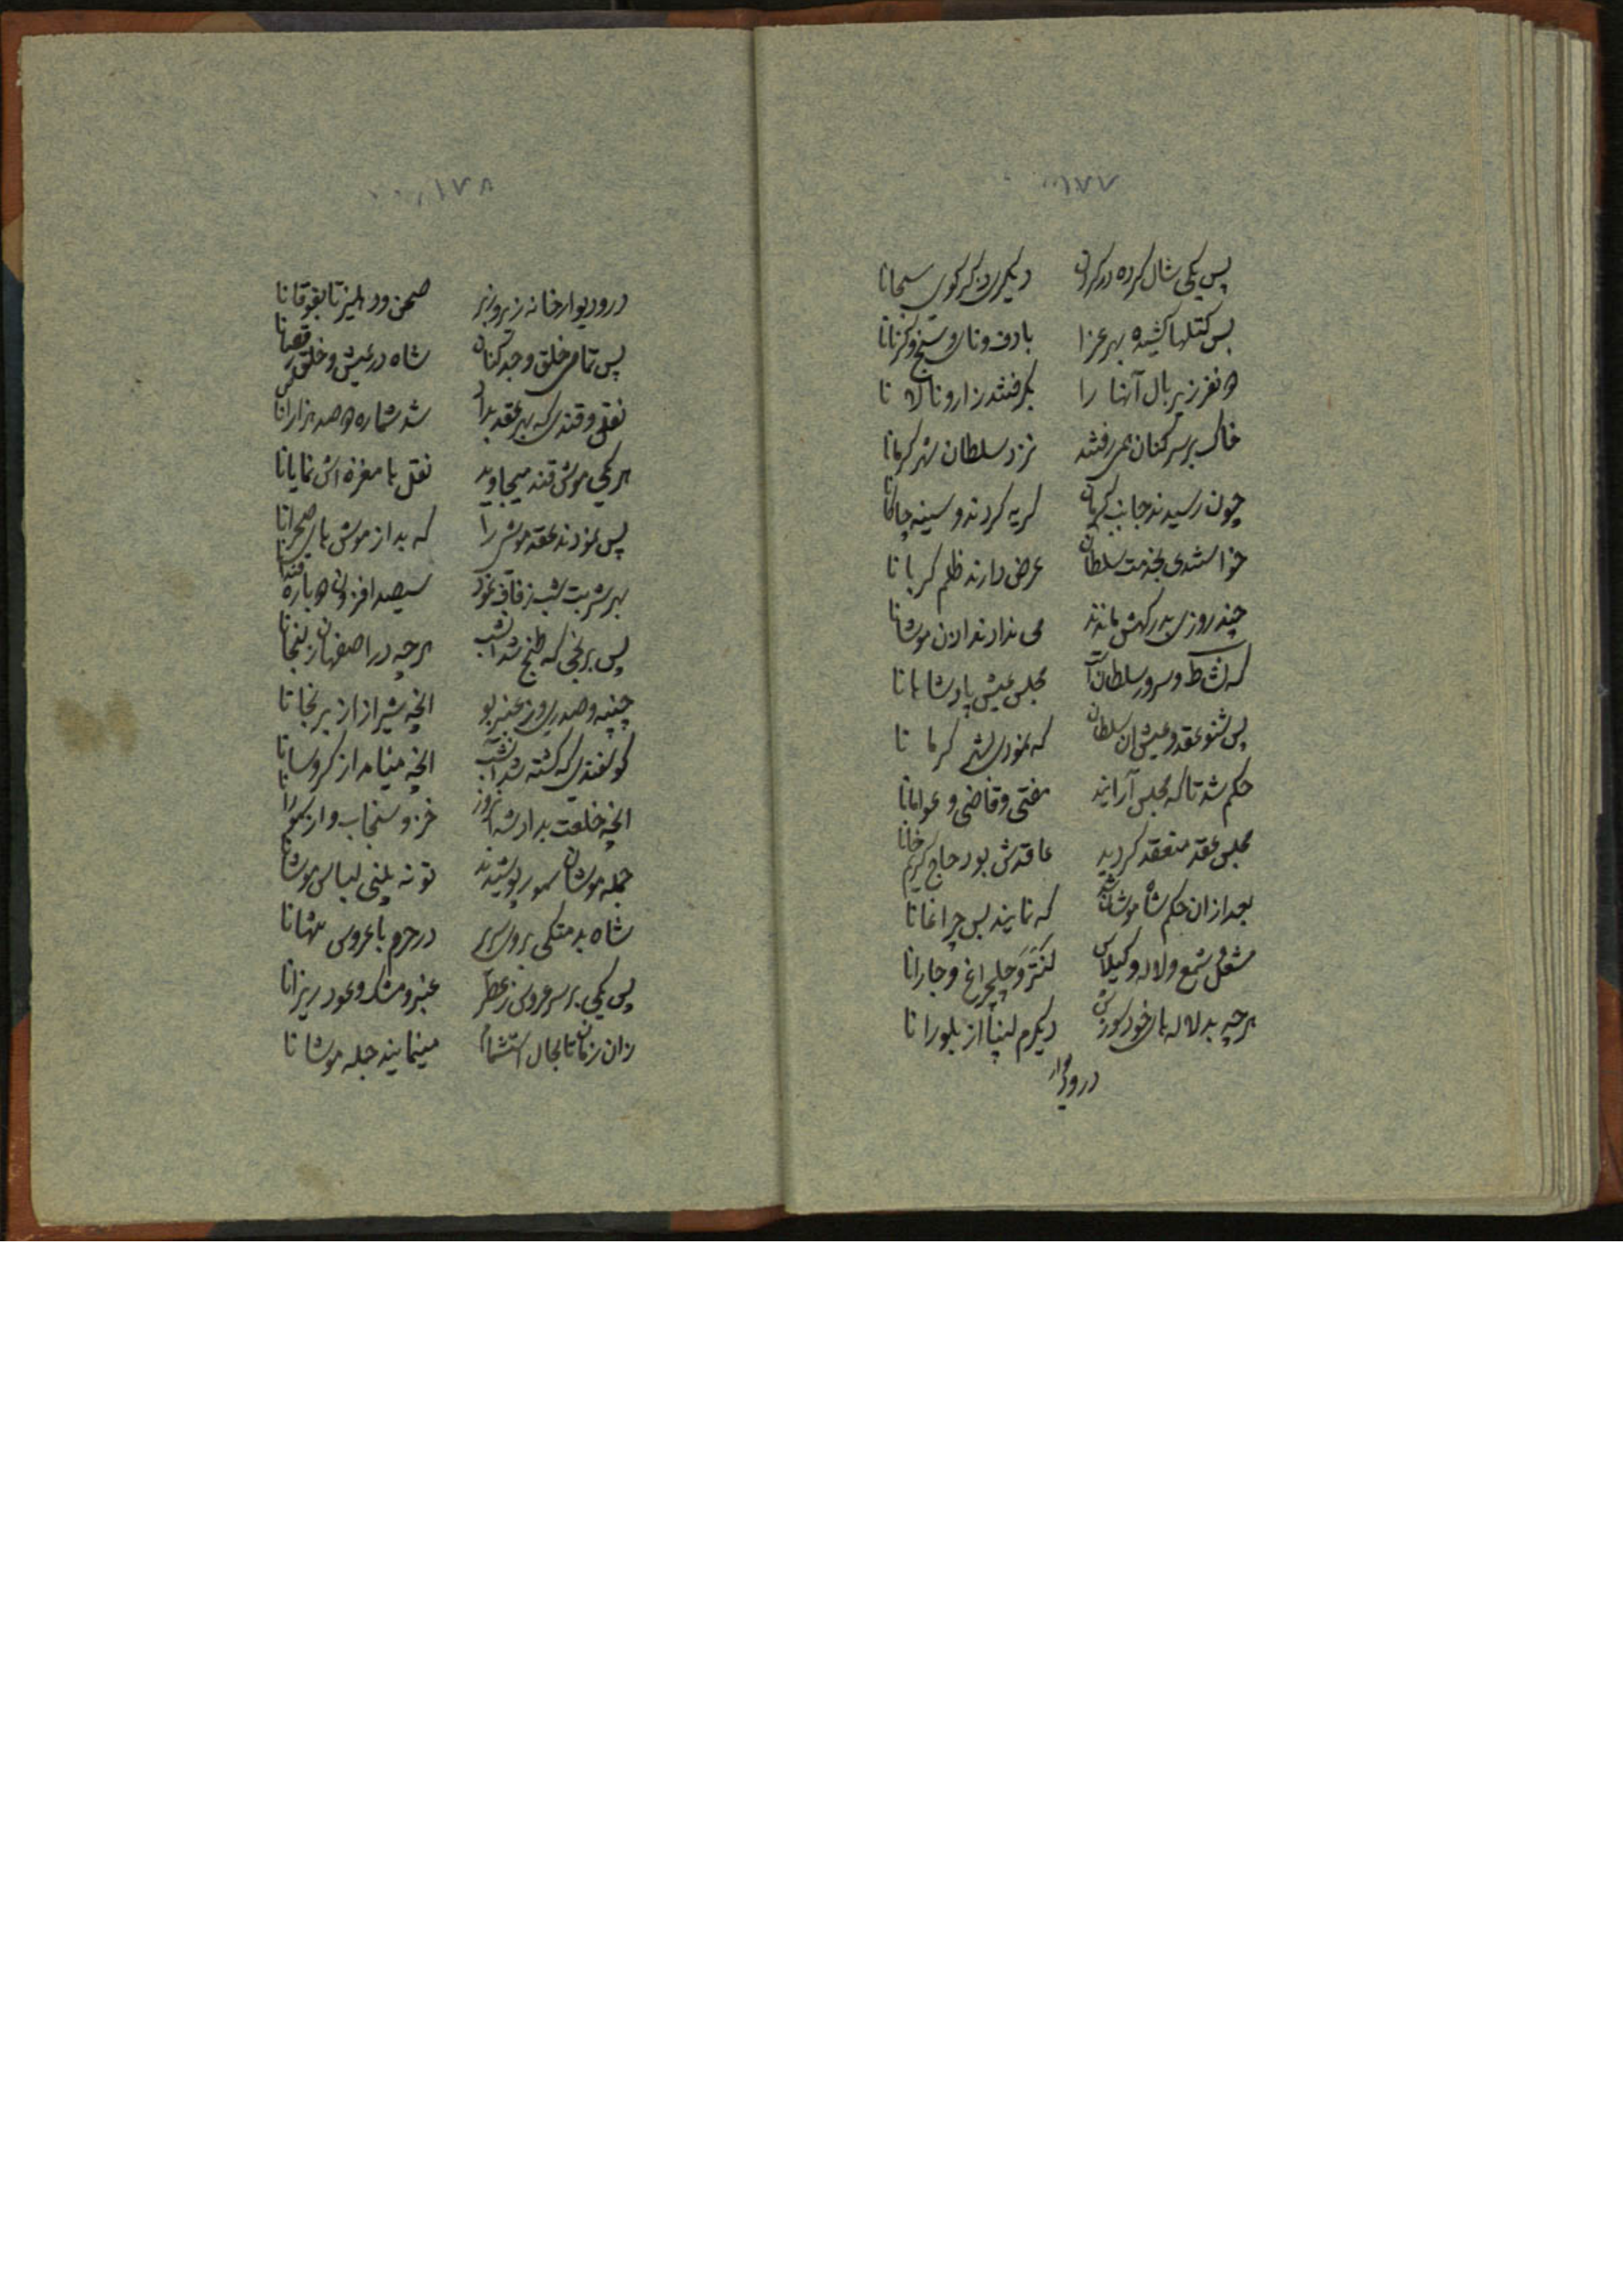 ۱۷۷
پس یکی شال کرده در گردن دیگری ذکر گوی سبحانا
بس کتلها کشیده بهر عزا با دف و نای و سنج و کرنانا
دو نفر زیر بال آنها را بگرفتند زار و نالانا
خاک بر سر کنان همی رفتند نزد سلطان شهر کرمانا
چون رسیدند جانب کرمان گریه کردند و سینه چاکانا
خواستندی بخدمت سلطان عرض دارند ظلم گربانا
چند روزی بدرگهش ماندند می ندادند اذن موشانا
که نشاط و سرور سلطان است مجلس عیش پادشاهانا
پس شنو عقد و عیش آن سلطان که نمودی بشهر کرمانا
حکم شد تا که مجلس آرایند مفتی و قاضی و عوامانا
مجلس عقد منعقد گردید عاقدش بود حاج کریم خانا
بعد از آن حکم شاه موشان شد که نمایند بس چراغانا
مشعل و شمع و لاله و گیلاس لنتر و چلچراغ و جارانا
هر چه بد لاله های خود سوزش دیگرم لنپا از بلورانا
در و دیوار
۱۷۸
در و دیوار خانه زیر و زبر صحن و دهلیز تا بفوقانا
پس تمامی خلق وجد کنان شاه در عیش و خلق رقصانا
نقل و قندی که بهر عقد بدا شد شماره دو صد هزارانا
هر یکی موش قند میجاوید نقل با مغزه اش نمایانا
پس نمودند عقد موشی را که بد از موش های صحرانا
بهر شربت شب زفاف نمود سیصد افزون دوباره قندانا
پس برنجی که طبخ شد آنشب هر چه در اصفهان برنجانا
چنپه و صدری و عنبربو آنچه شیراز از برنجانا
گوسفندی که کشته شد آنشب آنچه مینامد از کروسانا
آنچه خلعت بداد شه آنروز خز و سنجاب و از سمورانا
جمله موشان سمور پوشیدند تو نه بینی لباس موشانا
شاه بد متکی بروی سریر در حرم با عروس تنهانا
پس یکی بر سر عروس ز عطر عنبر و مشک و عود ریزانا
زان زمان تا بحال استشمام مینمایند جمله موشانا